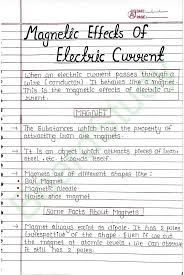 DATE
PAGE
Magnetic Effects Of
Electric Current
When an electric current passes through a
wire (conductor) It behaves like a magnet
This is the magnetic effects of electric cu-
rrent.
MAGNET
→ The Substances which have the property of
attracting Iron are magnets
→ It is an object which attracts pieces of Iron
steel, etc. itself
→ Magnets are of different shapes like:
Bar Magnet
Magnetic Needle
Horse shoe magnet
Some Facts About Magnets
→ Magnet always exist as dipole. It has 2 poles
of the shape. Even if we cut
the magnet at atomic levels. We can observe
it still has 2 poles.